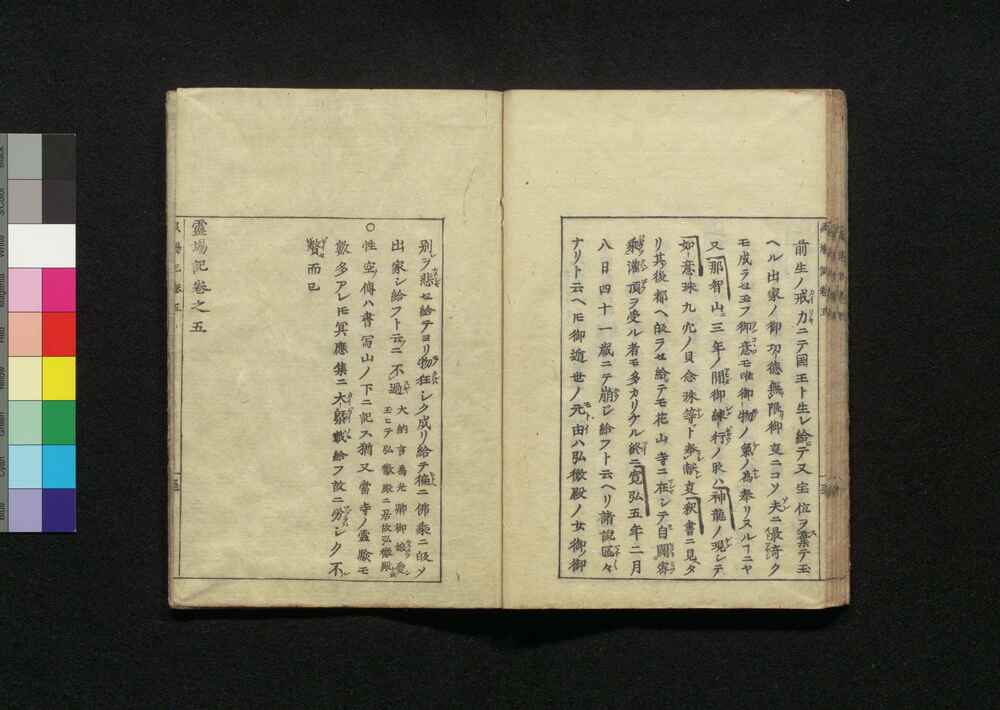 前生ノ戒力ニテ国王ト生レ給テ又宝位ヲ棄テ玉
ヘル出家ノ御功徳無限御事ニコソ夫ニ最奇ク
モ成ラセ玉フ御意モ唯御物ノ氣ノ為奉リヌルヿニヤ
又那智山三年ノ間御練行ノ功ハ神龍ノ現シテ
如意珠九穴ノ貝念珠等ト奉献事釈書ニ見タ
リ其後都ヘ皈ラセ給テモ花山寺ニ在シテ自闘
乗灌頂ヲ受ル者モ多カリケル終ニ寛弘五年二月
八日四十一歳ニテ崩シ給フト云ヘリ諸説區々
ナリト云ヘドモ御遁世ノ元由ハ弘徽殿ノ女御ノ御
別ヲ悲セ給テヨリ物狂シク成リ給テ襁ニ佛乗ニ皈ソ
出家シ給フト云ニ不過 大納言為光卿御娘愛
玉ヒテ弘徽殿ニ居故弘徽殿
○性空ノ傳ハ書写山ノ下ニ記ス猶又當寺ノ霊驗モ
數多アレドモ冥應集ニ大畧載給フ故ニ労シク不
贅而已
靈場記巻之五